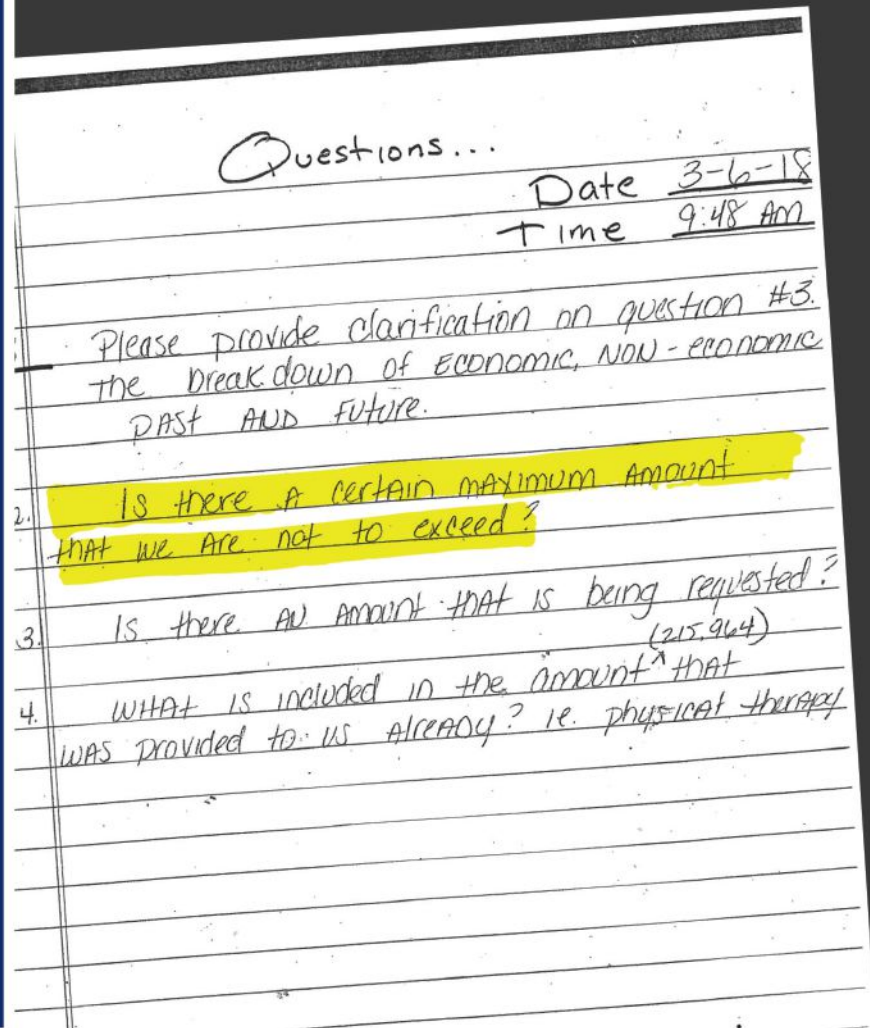 Questions...
Date 3-6-18
Time 9:48 AM
Please provide clarification on question #3.
The breakdown of Economic, NON-economic
PAST AND Future.
2. Is there A certain maximum Amount
that we Are not to exceed?
3. Is there AN Amount that is being requested?
(215,964)
4. WHAt is included in the amount ^ that
WAS provided to us AlreADy? ie. physicAl therapy